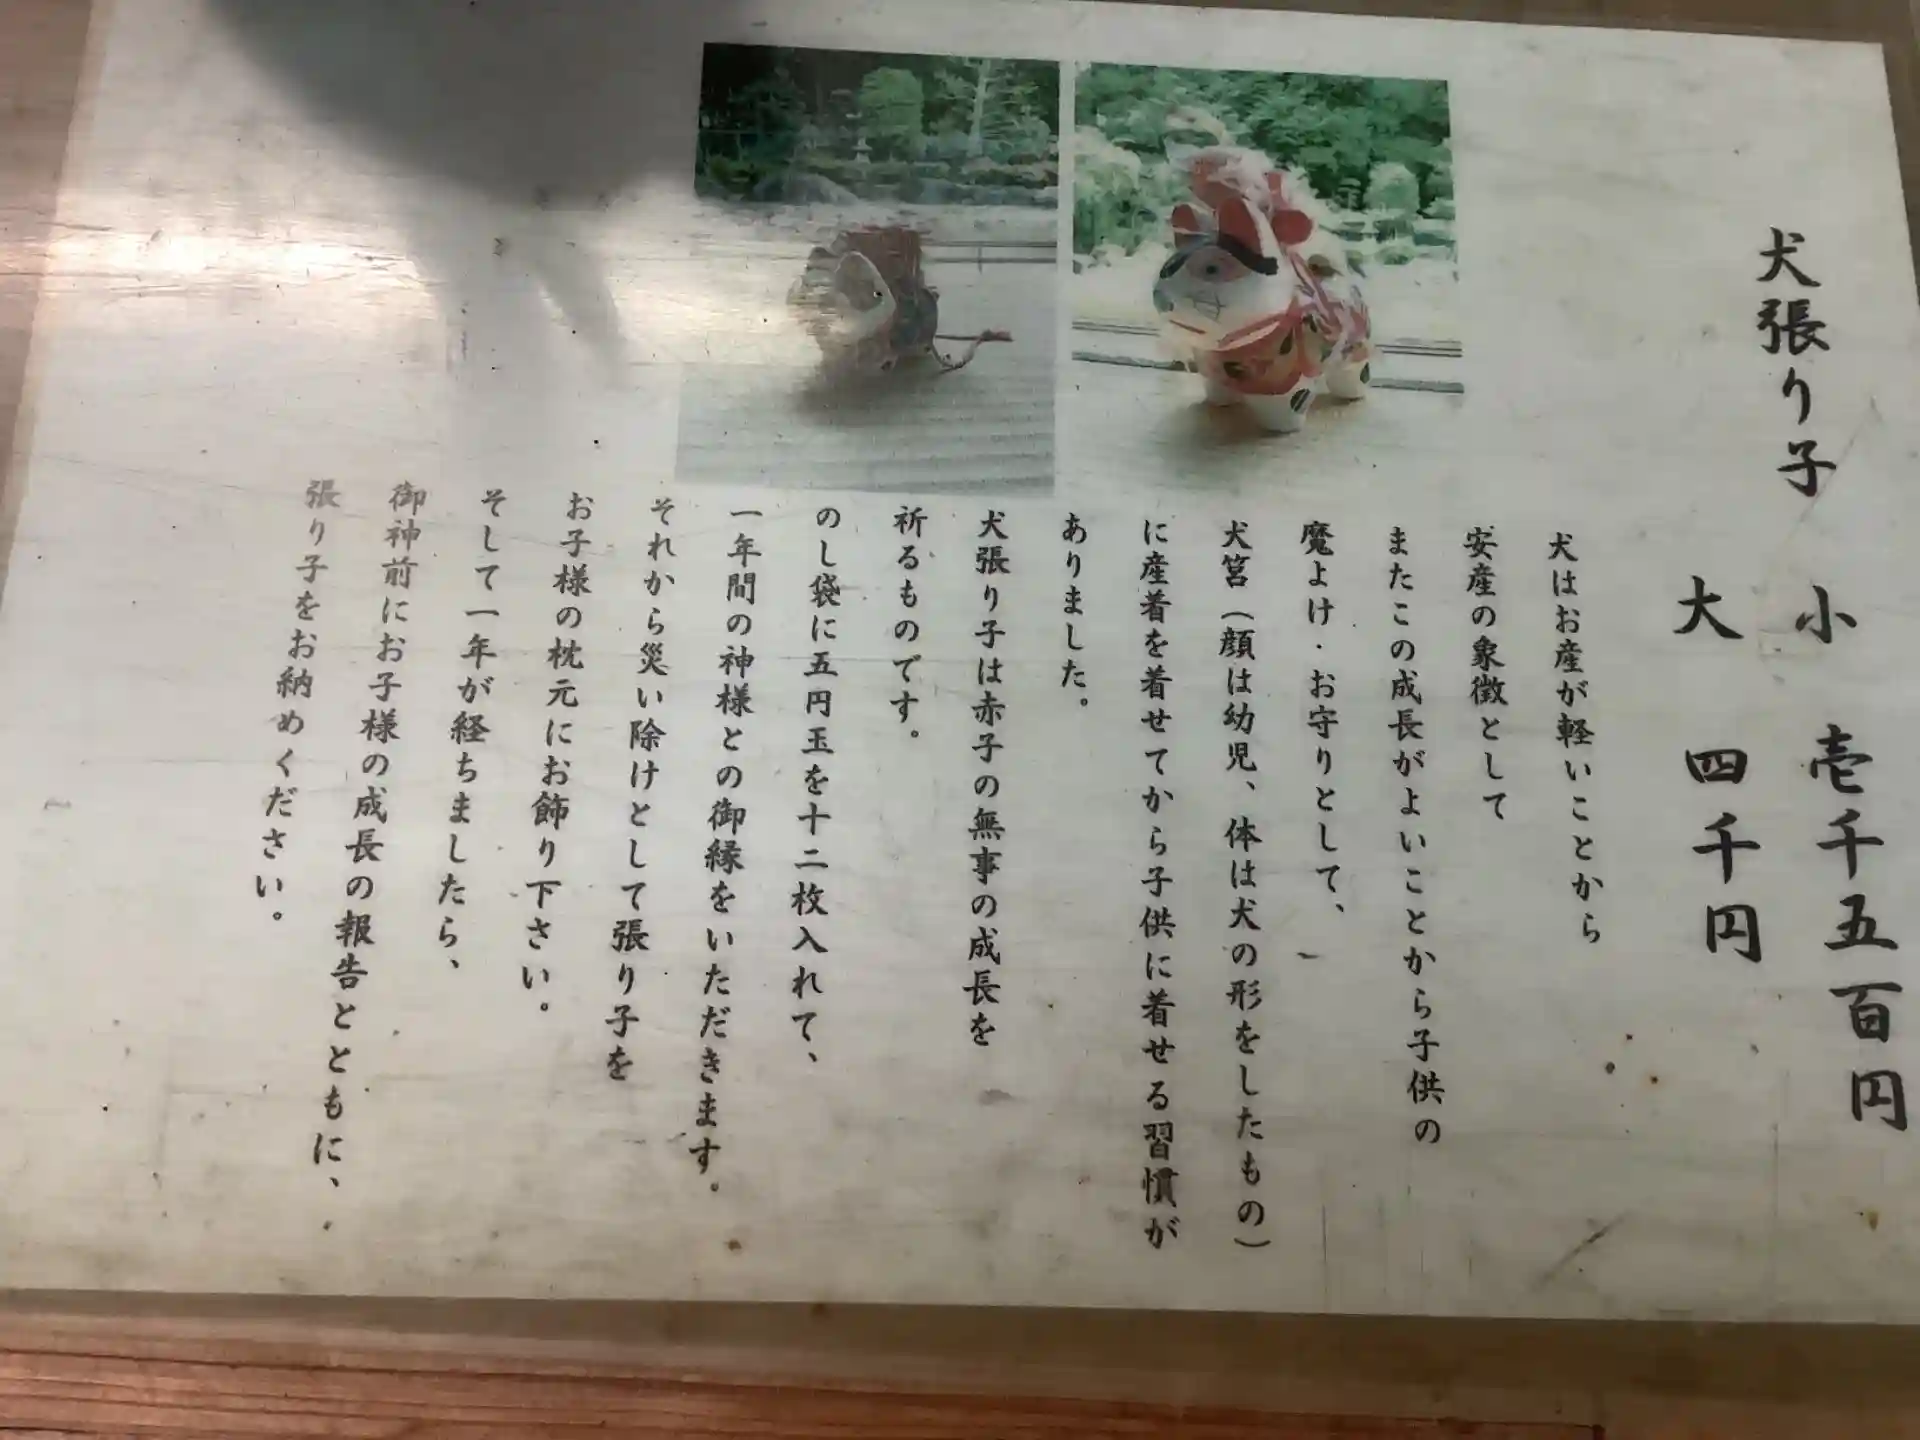 犬張り子
小 壱千五百円
大 四千円
犬はお産が軽いことから
安産の象徴として
またこの成長がよいことから子供の
魔よけ・お守りとして、
犬筥（顔は幼児、体は犬の形をしたもの）
に産着を着せてから子供に着せる習慣が
ありました。
犬張り子は赤子の無事の成長を
祈るものです。
のし袋に五円玉を十二枚入れて、
一年間の神様との御縁をいただきます。
それから災い除けとして張り子を
お子様の枕元にお飾り下さい。
そして一年が経ちましたら、
御神前にお子様の成長の報告とともに、
張り子をお納めください。